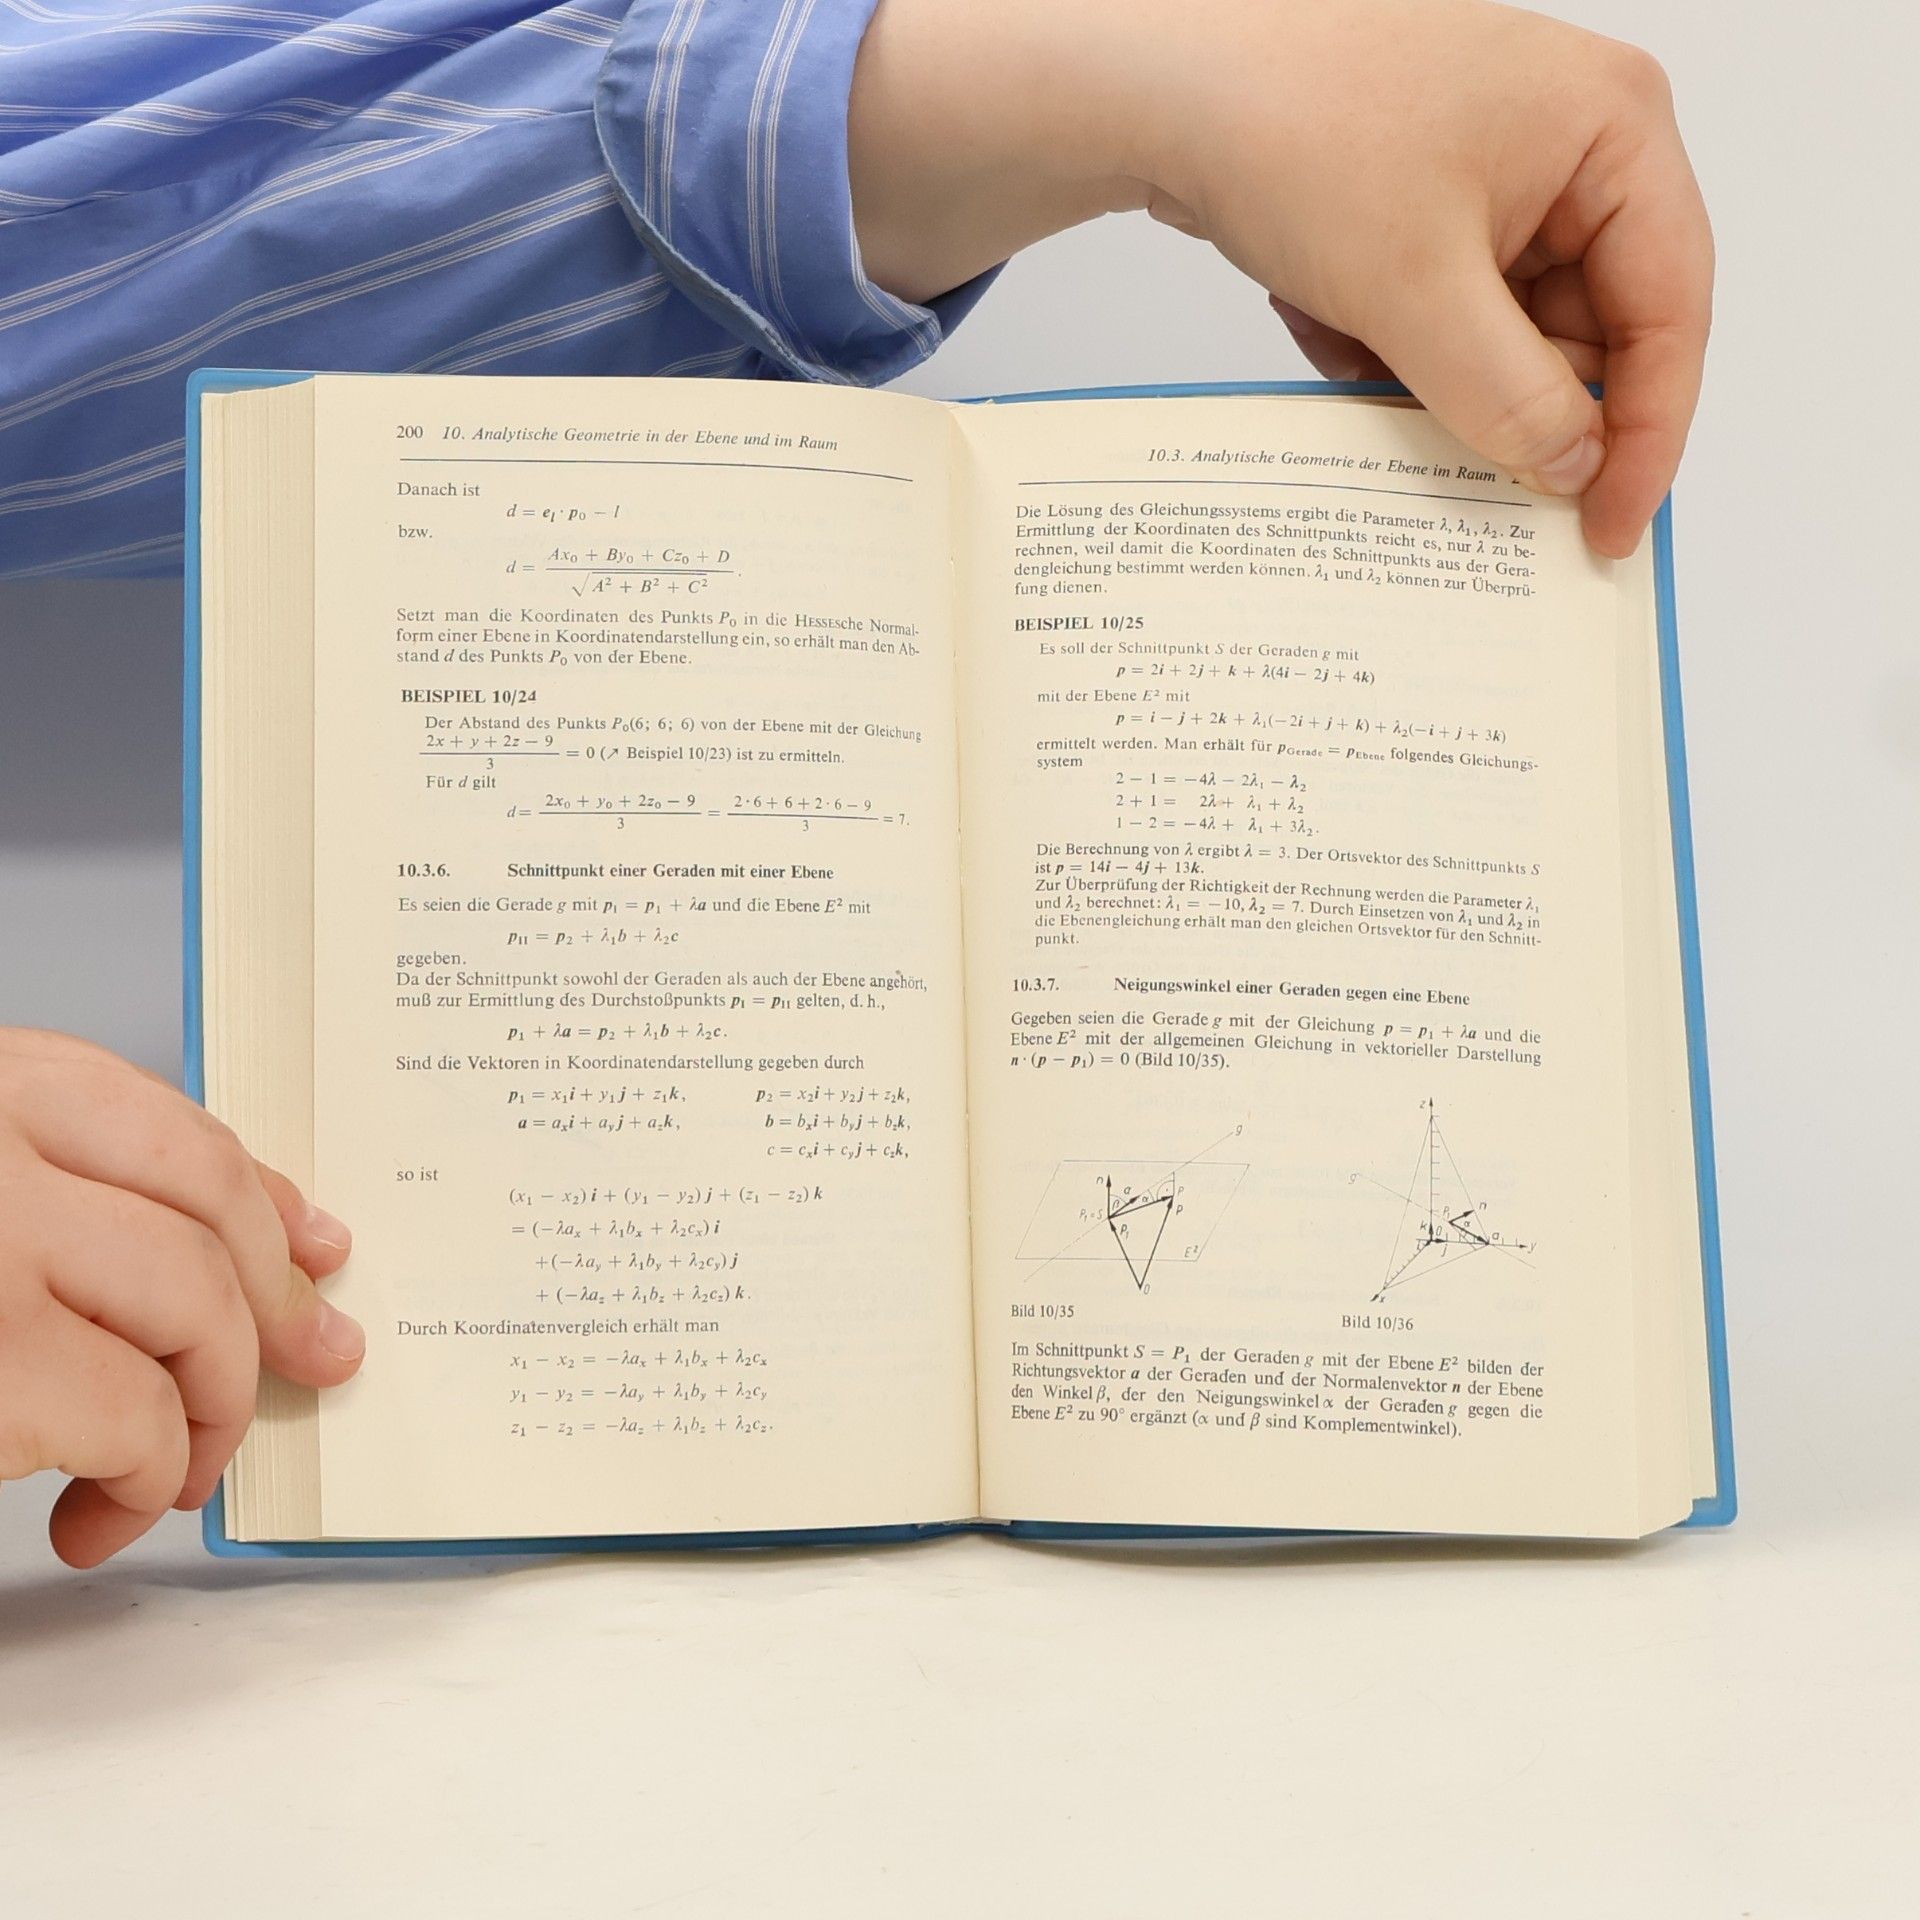 200 10. Analytische Geometrie in der Ebene und im Raum
Danach ist
d = e_l · p₀ − l
bzw.
d = (Ax₀ + By₀ + Cz₀ + D) / √(A² + B² + C²) .
Setzt man die Koordinaten des Punkts P₀ in die HESSEsche Normal-
form einer Ebene in Koordinatendarstellung ein, so erhält man den Ab-
stand d des Punkts P₀ von der Ebene.
BEISPIEL 10/24
Der Abstand des Punkts P₀(6; 6; 6) von der Ebene mit der Gleichung
(2x + y + 2z − 9) / 3 = 0 (↗ Beispiel 10/23) ist zu ermitteln.
Für d gilt
d = (2x₀ + y₀ + 2z₀ − 9) / 3 = (2 · 6 + 6 + 2 · 6 − 9) / 3 = 7.
10.3.6. Schnittpunkt einer Geraden mit einer Ebene
Es seien die Gerade g mit p_I = p₁ + λa und die Ebene E² mit
p_II = p₂ + λ₁b + λ₂c
gegeben.
Da der Schnittpunkt sowohl der Geraden als auch der Ebene angehört,
muß zur Ermittlung des Durchstoßpunkts p_I = p_II gelten, d. h.,
p₁ + λa = p₂ + λ₁b + λ₂c.
Sind die Vektoren in Koordinatendarstellung gegeben durch
p₁ = x₁i + y₁j + z₁k, p₂ = x₂i + y₂j + z₂k,
a = a_x i + a_y j + a_z k, b = b_x i + b_y j + b_z k,
c = c_x i + c_y j + c_z k,
so ist
(x₁ − x₂) i + (y₁ − y₂) j + (z₁ − z₂) k
= (−λa_x + λ₁b_x + λ₂c_x) i
+(−λa_y + λ₁b_y + λ₂c_y) j
+ (−λa_z + λ₁b_z + λ₂c_z) k.
Durch Koordinatenvergleich erhält man
x₁ − x₂ = −λa_x + λ₁b_x + λ₂c_x
y₁ − y₂ = −λa_y + λ₁b_y + λ₂c_y
z₁ − z₂ = −λa_z + λ₁b_z + λ₂c_z.
10.3. Analytische Geometrie der Ebene im Raum
Die Lösung des Gleichungssystems ergibt die Parameter λ, λ₁, λ₂. Zur
Ermittlung der Koordinaten des Schnittpunkts reicht es, nur λ zu be-
rechnen, weil damit die Koordinaten des Schnittpunkts aus der Gera-
dengleichung bestimmt werden können. λ₁ und λ₂ können zur Überprü-
fung dienen.
BEISPIEL 10/25
Es soll der Schnittpunkt S der Geraden g mit
p = 2i + 2j + k + λ(4i − 2j + 4k)
mit der Ebene E² mit
p = i − j + 2k + λ₁(−2i + j + k) + λ₂(−i + j + 3k)
ermittelt werden. Man erhält für p_Gerade = p_Ebene folgendes Gleichungs-
system
2 − 1 = −4λ − 2λ₁ − λ₂
2 + 1 = 2λ + λ₁ + λ₂
1 − 2 = −4λ + λ₁ + 3λ₂.
Die Berechnung von λ ergibt λ = 3. Der Ortsvektor des Schnittpunkts S
ist p = 14i − 4j + 13k.
Zur Überprüfung der Richtigkeit der Rechnung werden die Parameter λ₁
und λ₂ berechnet: λ₁ = −10, λ₂ = 7. Durch Einsetzen von λ₁ und λ₂ in
die Ebenengleichung erhält man den gleichen Ortsvektor für den Schnitt-
punkt.
10.3.7. Neigungswinkel einer Geraden gegen eine Ebene
Gegeben seien die Gerade g mit der Gleichung p = p₁ + λa und die
Ebene E² mit der allgemeinen Gleichung in vektorieller Darstellung
n · (p − p₁) = 0 (Bild 10/35).
g
n a P
P₁=S β α p
p₁
E²
0
z
g
n
P₁ α
k 0
i j a y
x
Bild 10/35
Bild 10/36
Im Schnittpunkt S = P₁ der Geraden g mit der Ebene E² bilden der
Richtungsvektor a der Geraden und der Normalenvektor n der Ebene
den Winkel β, der den Neigungswinkel α der Geraden g gegen die
Ebene E² zu 90° ergänzt (α und β sind Komplementwinkel).